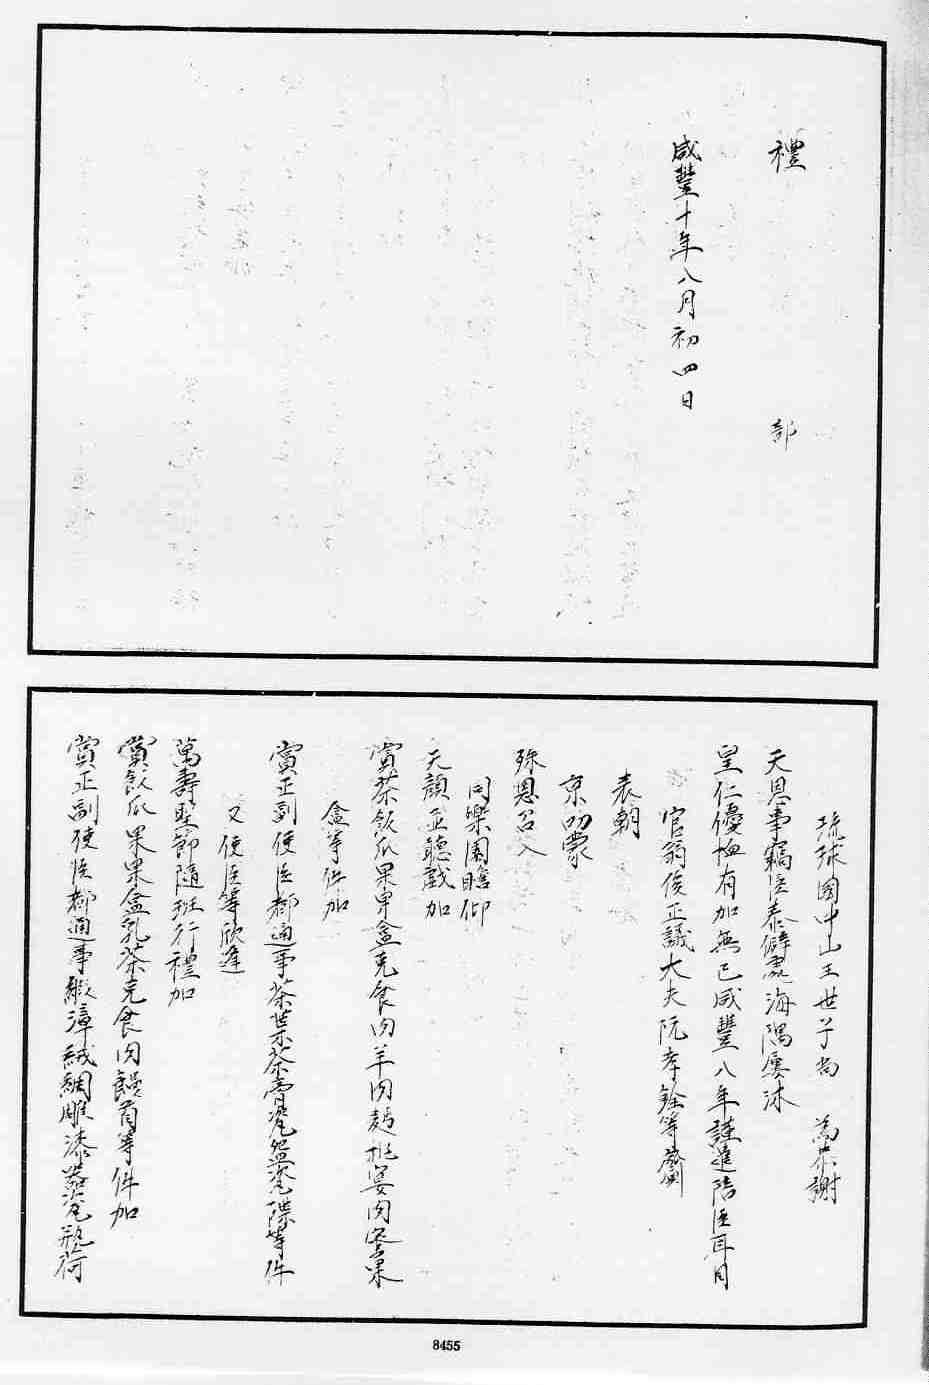 禮　部
咸豐十年八月初四日
琉球國中山王世子尚　為恭謝
天恩事竊臣泰僻處海隅屢沐
皇仁優恤有加無已咸豐八年謹遣陪臣耳目
官翁俊正議大夫阮孝銓等齎
表朝
京叨蒙
殊恩召入
同樂園瞻仰
天顏並聽戲加
賞茶飯瓜果果盒克食肉羊肉
盒等件加
賞正副使臣都通事茶葉茶膏瓷盤瓷碟等件
又使臣等欣逢
萬壽聖節隨班行禮加
賞飯瓜果果盒乳茶克食肉饅首等件加
賞正副使臣都通事緞漳絨綢雕漆器瓷瓶荷
8455